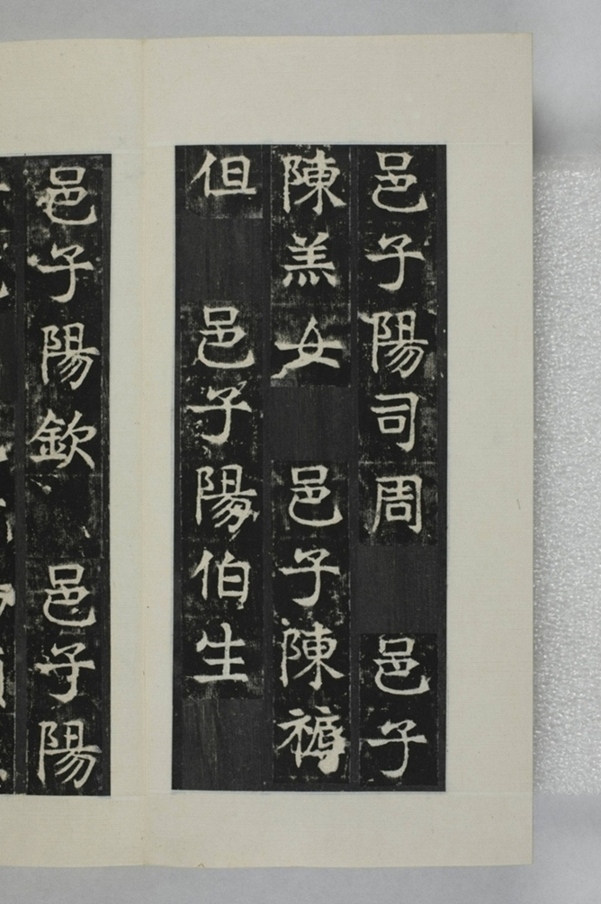 邑子陽司周 邑子
陳羔女 邑子陳
但 邑子陽伯生
邑子陽欽 邑子陽